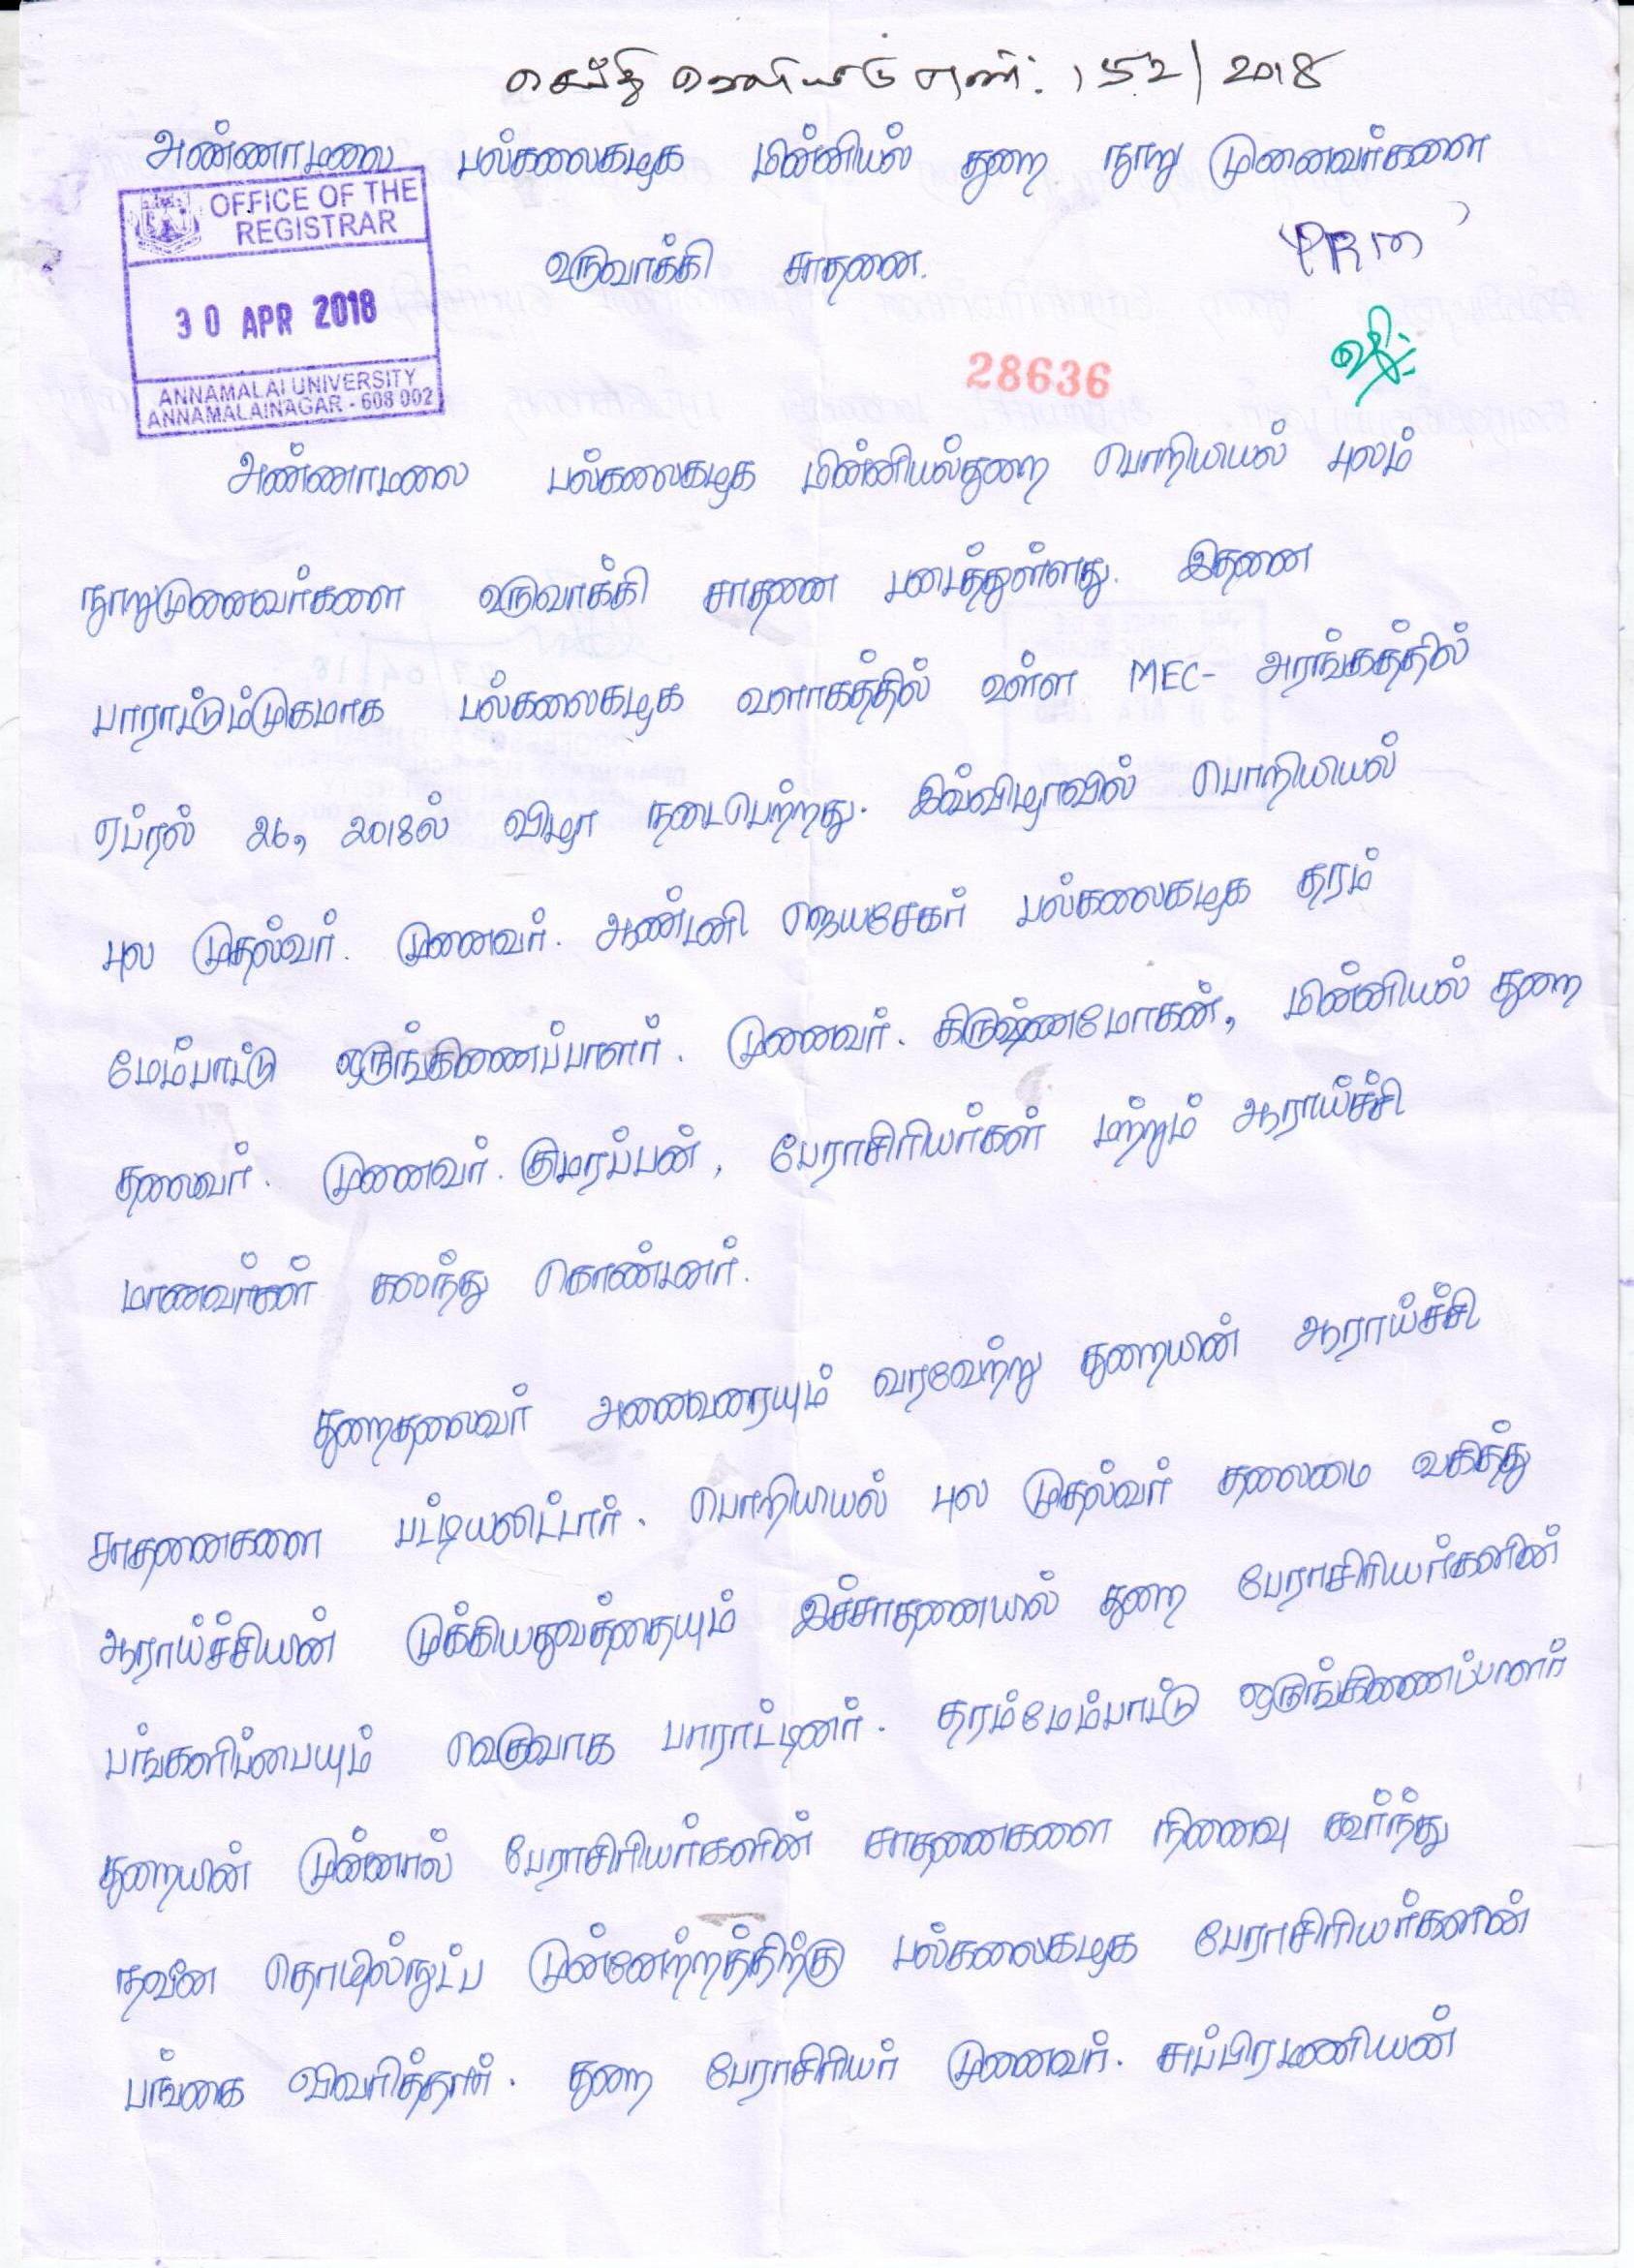 செய்தி வெளியீடு எண்: 152/2018
அண்ணாமலை பல்கலைகழக மின்னியல் துறை நூறு முனைவர்களை
OFFICE OF THE
REGISTRAR
உருவாக்கி சாதனை.
PRM
30 APR 2018
28636
ANNAMALAI UNIVERSITY
ANNAMALAINAGAR - 608 002
அண்ணாமலை பல்கலைகழக மின்னியல்துறை பொறியியல் புலம்
நூறுமுனைவர்களை உருவாக்கி சாதனை படைத்துள்ளது. இதனை
பாராட்டும்முகமாக பல்கலைகழக வளாகத்தில் உள்ள MEC- அரங்கத்தில்
ஏப்ரல் 26, 2018ல் விழா நடைபெற்றது. இவ்விழாவில் பொறியியல்
புல முதல்வர். முனைவர். ஆண்டனி ஜெயசேகர் பல்கலைகழக தரம்
மேம்பாட்டு ஒருங்கிணைப்பாளர். முனைவர். கிருஷ்ணமோகன், மின்னியல் துறை
தலைவர். முனைவர். குமரப்பன், பேராசிரியர்கள் மற்றும் ஆராய்ச்சி
மாணவர்கள் கலந்து கொண்டனர்.
துறைதலைவர் அனைவரையும் வரவேற்று துறையின் ஆராய்ச்சி
சாதனைகளை பட்டியலிட்டார். பொறியியல் புல முதல்வர் தலைமை வகித்து
ஆராய்ச்சியின் முக்கியதுவத்தையும் இச்சாதனையில் துறை பேராசிரியர்களின்
பங்களிப்பையும் வெகுவாக பாராட்டினர். தரம்மேம்பாட்டு ஒருங்கிணைப்பாளர்
துறையின் முன்னால் பேராசிரியர்களின் சாதனைகளை நினைவு கூர்ந்து
நவீன தொழில்நுட்ப முன்னேற்றத்திற்கு பல்கலைகழக பேராசிரியர்களின்
பங்கை விவரித்தார். துறை பேராசிரியர் முனைவர். சுப்பிரமணியன்